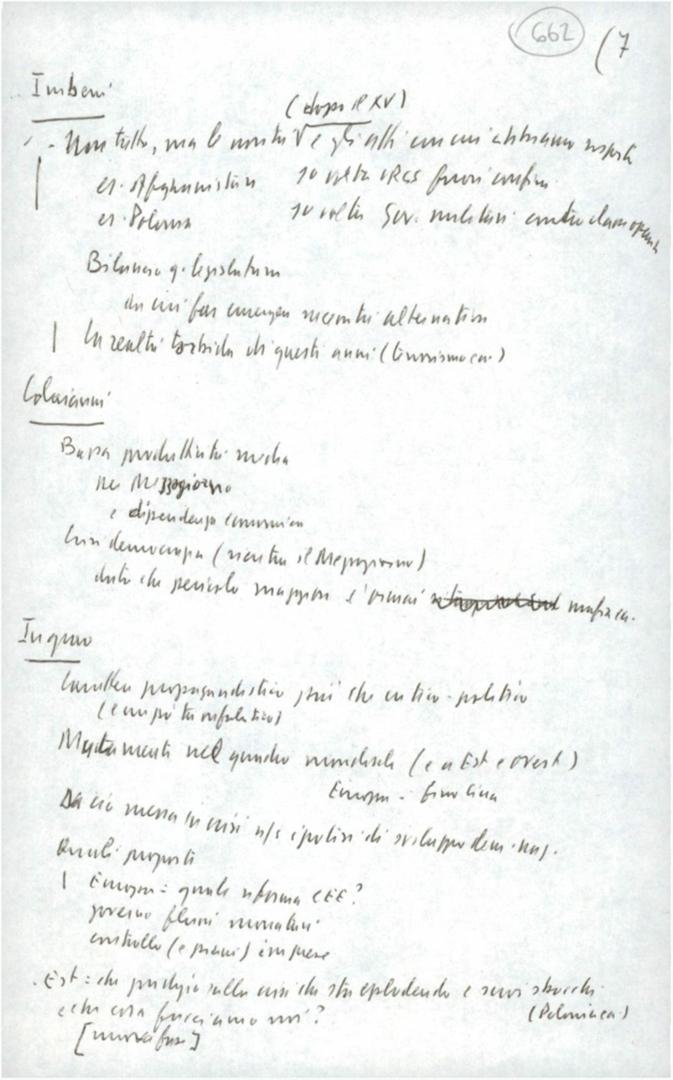 662 (7
Imbeni
(dopo il XV)
- Non tutto, ma le novità e gli altri con cui abbiamo
es. Afghanistan 1a volta URSS fuori confini
es. Polonia 1a volta Gov. militari contro classe operaia
Bilancio q. legislatura
da cui far emergere necessità alternativa
La realtà torbida di questi anni (terrorismo ecc.)
Colajanni
Bassa produttività media
nel Mezzogiorno
e dipendenza economica
Crisi democrazia (mentre il Mezzogiorno)
dato che pericolo maggiore è ormai mafia ecc.
Ingrao
Carattere propagandistico più che critico-politico
(e un po'
Mutamenti nel quadro mondiale (e a Est e Ovest)
Europa -
Da ciò messa in crisi n/s ipotesi di sviluppo dem. naz.
Quali proposte
Europa: quale riforma CEE?
governo flussi monetari
controllo (e piani) imprese
Est: che giudizio sulla crisi che sta esplodendo e suoi sbocchi
e che cosa facciamo noi? (Polonia ecc.)
[nuova fase]